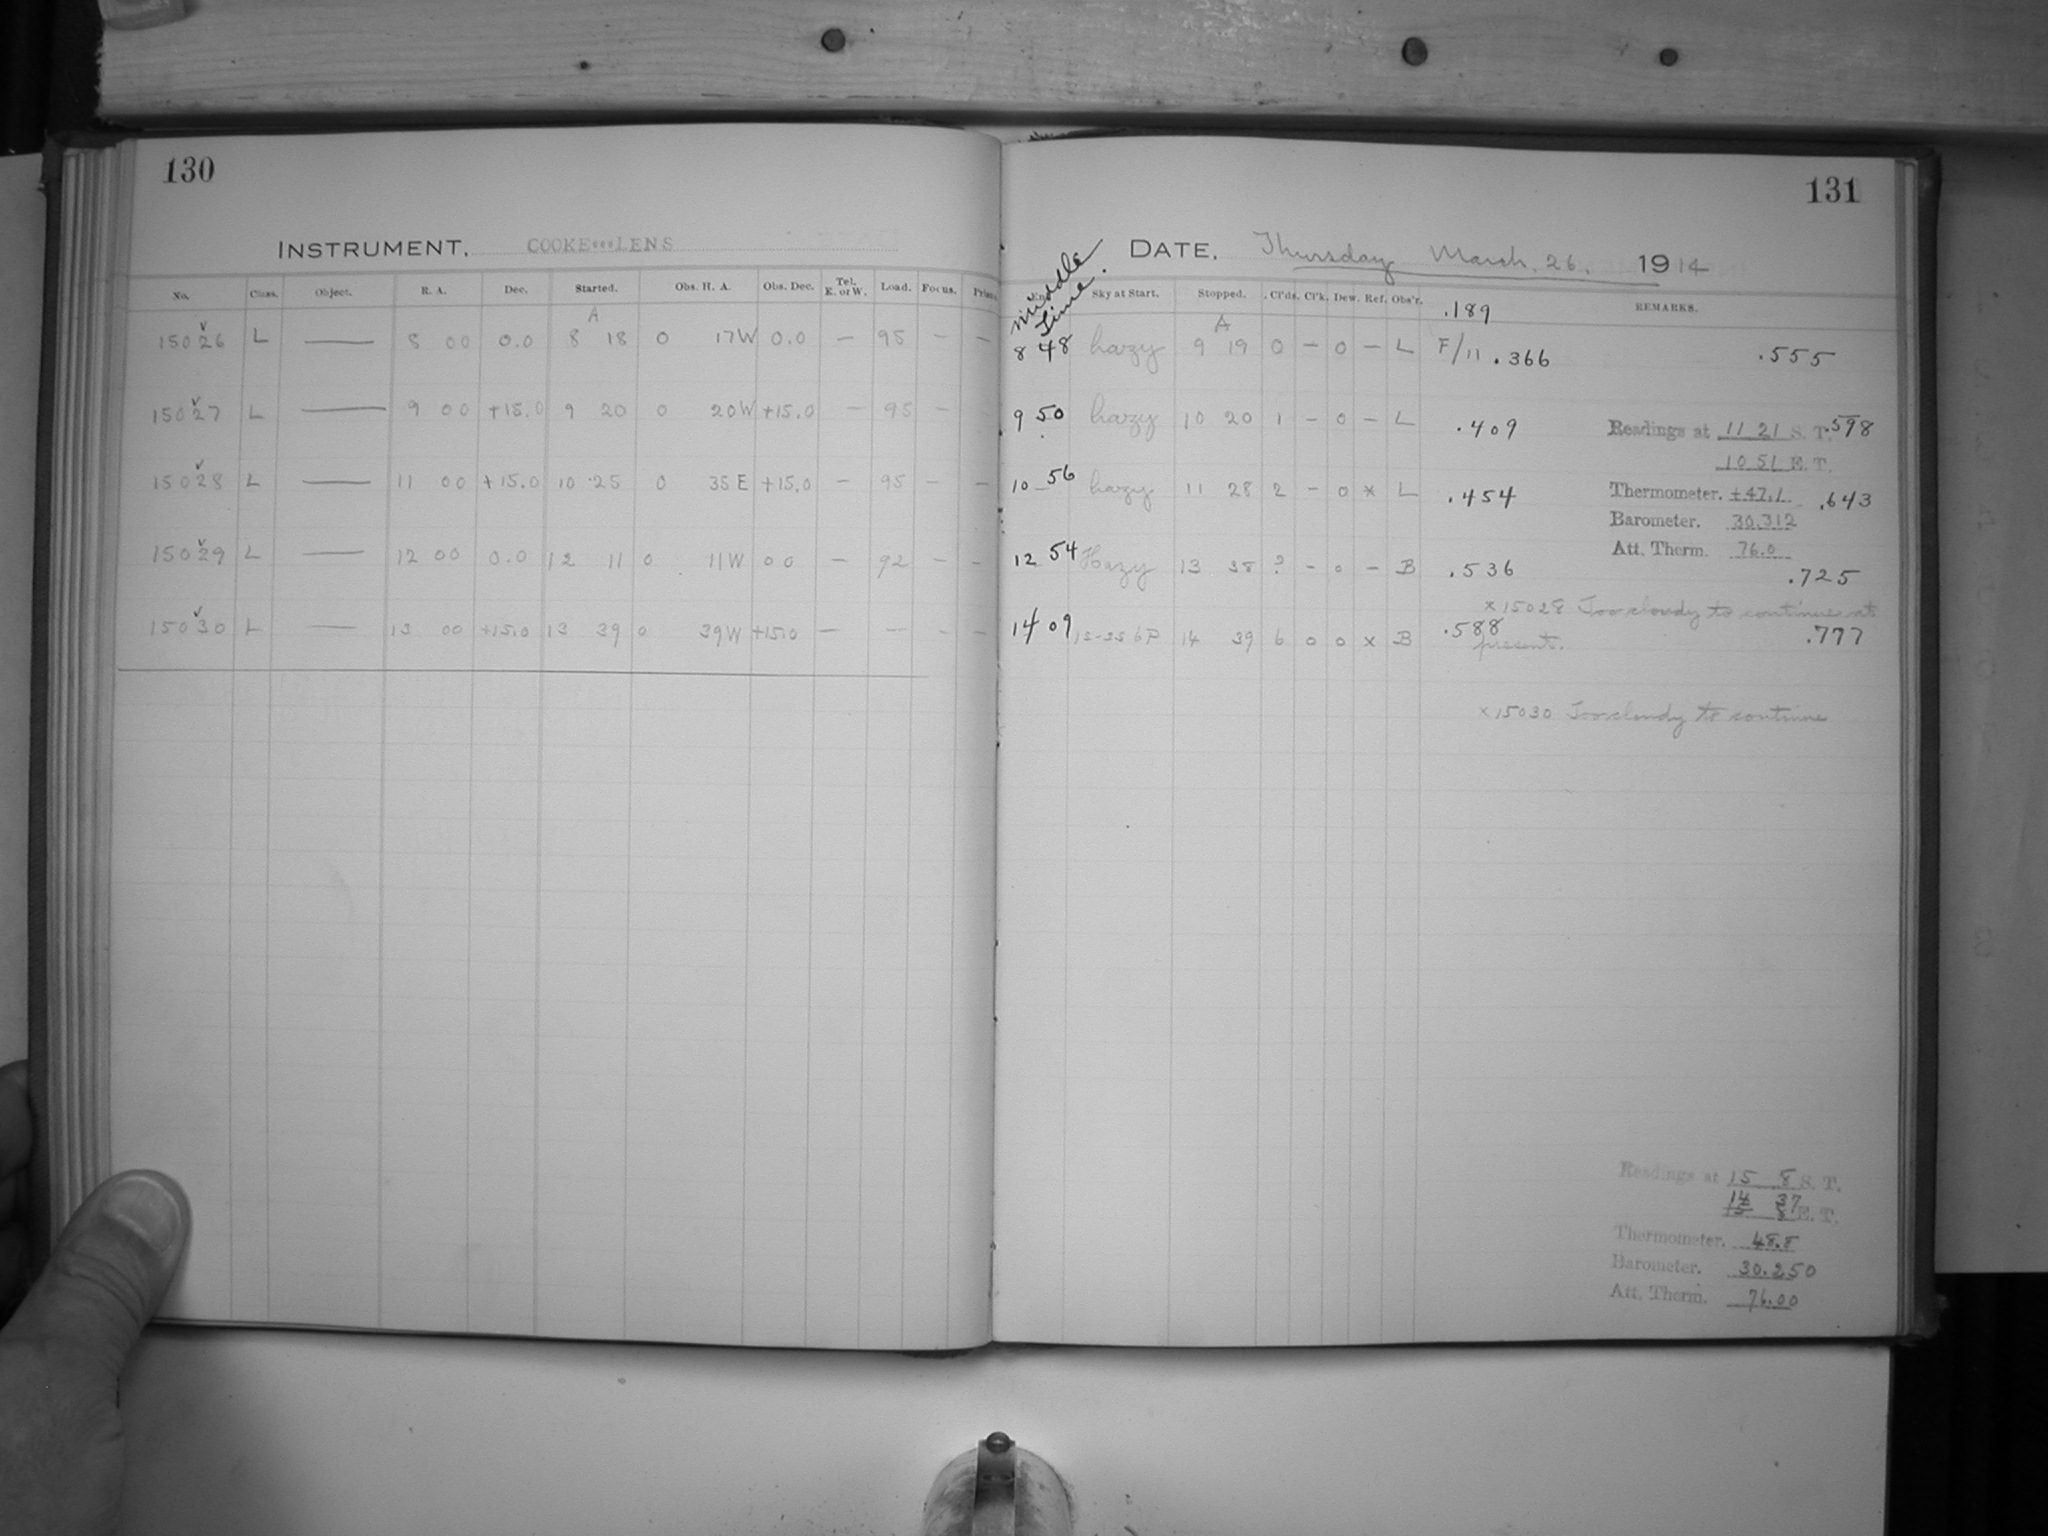 130
INSTRUMENT. COOKE LENS
No. Class. Object. R. A. Dec. Started. Obs. H. A. Obs. Dec. Tel. E. or W. Load. Focus.
A
15026 L — 8 00 0.0 8 18 0 17W 0.0 — 95 — —
15027 L — 9 00 +15.0 9 20 0 20W +15.0 — 95 — —
15028 L — 11 00 +15.0 10 25 0 35E +15.0 — 95 — —
15029 L — 12 00 0.0 12 11 0 11W 00 — 92 — —
15030 L — 13 00 +15.0 13 39 0 39W +15.0 — — - -
131
DATE. Thursday March. 26. 1914
middle Time.
Sky at Start. Stopped. Cl'ds. Cl'k. Dew. Ref. Obs'r. .189 REMARKS.
A
8 48 hazy 9 19 0 — 0 — L F/11 .366 .555
9 50 hazy 10 20 1 - 0 — L .409
Readings at 11 21 S. T. .598
10 51 E. T.
10 56 hazy 11 28 2 - 0 x L .454
Thermometer. +47.1 .643
Barometer. 30.312
Att. Therm. 76.0
12 54 Hazy 13 38 ? - 0 — B .536 .725
x 15028 Too cloudy to continue at
present.
14 09 14 39 6 0 0 x B .588 .777
x 15030 Too cloudy to continue
Readings at 15 8 S. T.
14 37 E. T.
Thermometer. 48.8
Barometer. 30.250
Att. Therm. 76.00